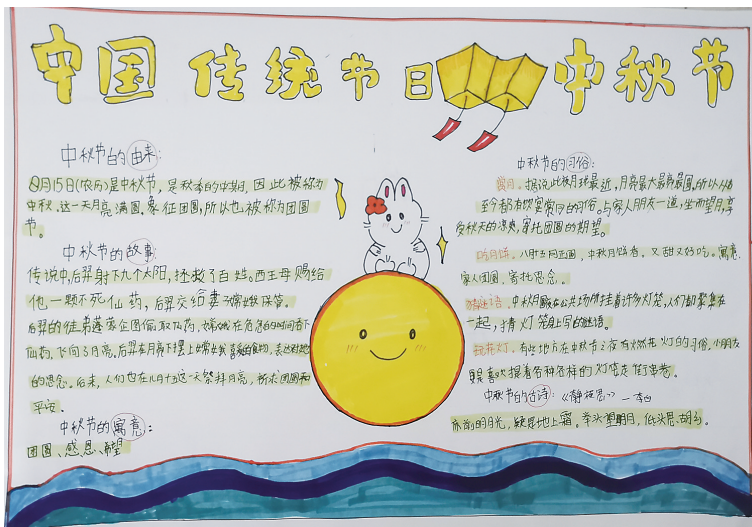 中国传统节日 中秋节
中秋节的由来:
8月15日(农历)是中秋节,是秋季的中期,因此被称为
中秋,这一天月亮满圆,象征团圆,所以也被称为团圆
节。
中秋节的故事:
传说中,后羿射下九个太阳,拯救了百姓。西王母赐给
他一颗不死仙药,后羿交给妻子嫦娥保管。
后羿的徒弟蓬蒙企图偷取仙药,嫦娥在危急的时间吞下
仙药,飞向了月亮,后羿在月亮下摆上嫦娥喜爱的食物,表达对她
的思念。后来,人们也在八月十五这一天祭拜月亮,祈求团圆和
平安。
中秋节的寓意:
团圆、感恩、希望
中秋节的习俗:
赏月。据说此夜月球最近,月亮最大最亮最圆,所以从古
至今都有饮宴赏月的习俗。与家人朋友一道,坐而望月,享
受秋天的凉爽,寄托团圆的期望。
吃月饼。八月十五月正圆,中秋月饼香。又甜又好吃。寓意
家人团圆,寄托思念。
猜谜语。中秋月圆夜在公共场所挂着许多灯笼,人们都聚集在
一起,猜灯笼上写的谜语。
玩花灯。有些地方在中秋节之夜有燃花灯的习俗。小朋友
更喜欢提着各种各样的灯笼走街串巷。
中秋节的古诗:《静夜思》—李白
床前明月光,疑是地上霜。举头望明月,低头思故乡。